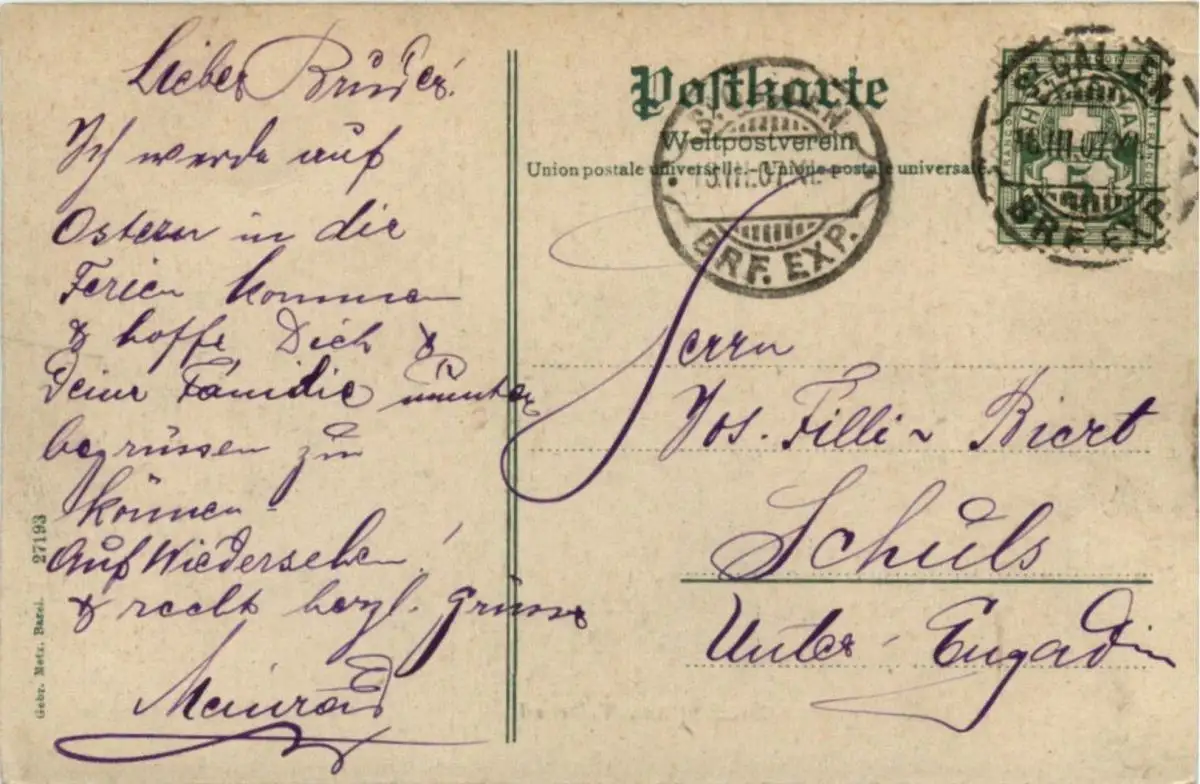 Lieber Bruder!
Ich werde auf
Ostern in die
Ferien kommen
& hoffe Dich &
Deine Familie munter
begrüssen zu
können
Auf Wiedersehen!
& recht herzl. Grüsse
Meinrad
Gebr. Metz, Basel. 27193
Postkarte
Weltpostverein
Union postale universelle. - Unione postale universale.
ST. GALLEN
BRF. EXP.
HELVETIA
5
ST. GALLEN
BRF. EXP.
Herrn
Jos. Filli - Biert
Schuls
Unter-Engadin